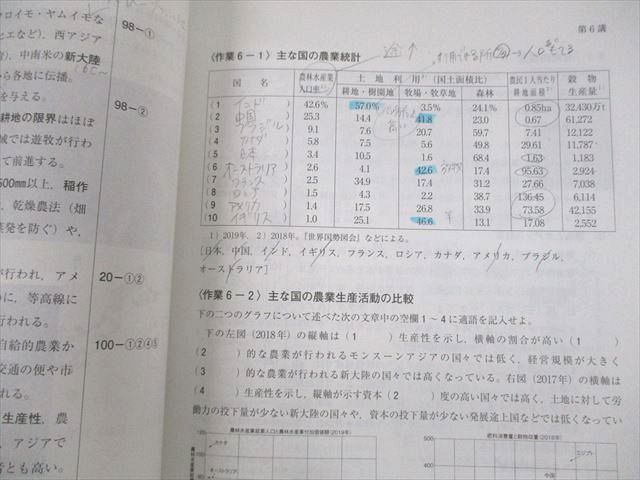 第6講
98-①
98-②
20-①②
100-①②④⑤
ロイモ・ヤムイモな
ヒエなど)，西アジア
，中南米の新大陸
から各地に伝播。
を与える。
耕地の限界はほぼ
域では遊牧が行わ
て前進する。
500mm以上，稲作
，乾燥農法（畑
発を防ぐ）や，
が行われ，アメ
に，等高線に
行われる。
自給的農業か
交通の便や市
れる。
生産性，農
，アジアで
性とも高い。
〈作業6-1〉主な国の農業統計
途↑
国名 農林水産業人口率 土地利用（国土面積比） 農民1人当たり耕地面積 穀物生産量
耕地・樹園地 牧場・牧草地 森林
(1 インド) 42.6% 57.0% 3.5% 24.1% 0.85ha 32,430万t
(2 中国) 25.3 14.4 41.8 23.0 0.67 61,272
(3 ブラジル) 9.1 7.6 20.7 59.7 7.41 12,122
(4 カナダ) 5.8 7.5 5.6 49.8 29.61 11,787
(5 日本) 3.4 10.5 1.6 68.4 1.63 1,183
(6 オーストラリア) 2.6 4.1 42.6 17.4 95.63 2,924
(7 フランス) 2.5 34.9 17.4 31.2 27.66 7,038
(8 ロシア) 1.5 4.3 2.2 38.7 136.45 6,114
(9 アメリカ) 1.4 17.5 26.8 33.9 73.58 42,155
(10 イギリス) 1.0 25.1 46.6 13.1 17.08 2,552
1）2019年，2）2018年。『世界国勢図会』などによる。
[日本，中国，インド，イギリス，フランス，ロシア，カナダ，アメリカ，ブラジル，
オーストラリア]
〈作業6-2〉主な国の農業生産活動の比較
下の二つのグラフについて述べた次の文章中の空欄1～4に適語を記入せよ。
下の左図（2018年）の縦軸は（1　　）生産性を示し，横軸の割合が高い（1　　）
（2　　）的な農業が行われるモンスーンアジアの国々では低く，経営規模が大きく
（3　　）的な農業が行われる新大陸の国々では高くなっている。右図（2017年）の横軸は
（4　　）生産性を示し，縦軸が示す資本（2　　）度の高い国々では高く，土地に対して労
働力の投下量が少ない新大陸の国々や，資本の投下量が少ない発展途上国などでは低くなってい
農林水産業就業人口と農林水産業付加価値額（2019年）
肥料消費量と穀物収量（2018年）
カナダ
オーストラリア
500
400
エジプト
中国